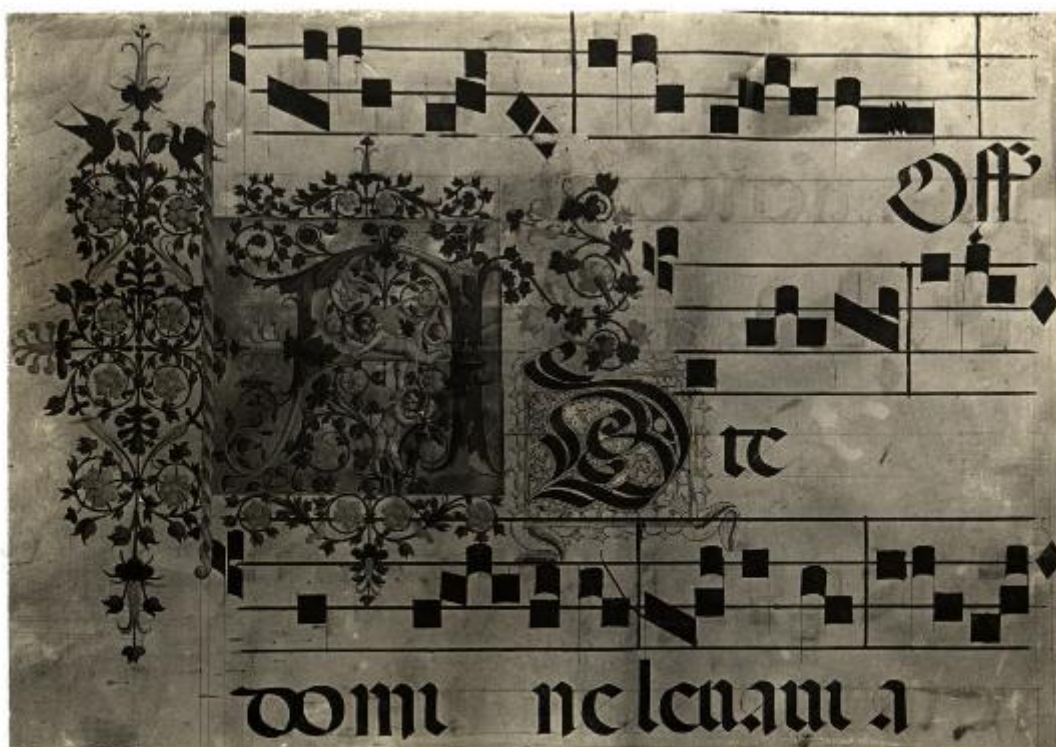 Off
AD te
domi ne leuaui a